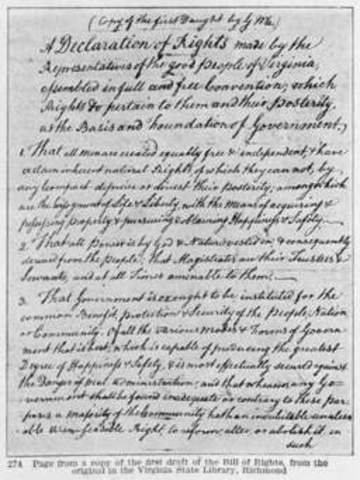 (Copy of the first Daught by G M.)
A Declaration of Rights made by the
Representatives of the good people of Virginia,
assembled in full and free Convention; which
Rights do pertain to them and their posterity,
as the Basis and Foundation of Government,
1. That all men are created equally free & independent, & have
certain inherent natural Rights, of which they cannot, by
any Compact deprive or divest their posterity; among which
are the enjoyment of Life & Liberty, with the Means of acquiring &
possessing property, & pursueing & obtaining Happiness & Safety.
2. That all Power is by God & Nature vested in, & consequently
derived from the People; that Magistrates are their Trustees &
Servants, and at all Times amenable to them.
3. That Government is or ought to be instituted for the
common Benefit, protection & Security of the People, Nation
or Community. Of all the various Modes & Forms of Govern-
ment that is best, which is capable of producing the greatest
Degree of Happiness & Safety, & is most effectually secured against
the Danger of mal-administration; and that whenever any Go-
vernment shall be found inadequate or contrary to these pur-
poses a majority of the Community hath an indubitable unalien-
able & indefeasible Right to reform, alter or abolish it, in
such
274 Page from a copy of the first draft of the Bill of Rights, from the
original in the Virginia State Library, Richmond